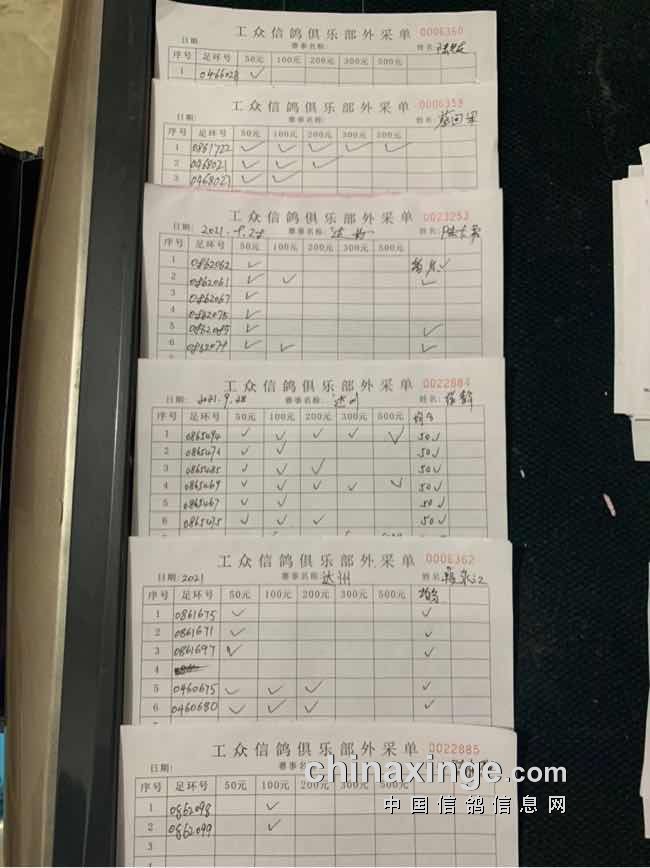 工众信鸽俱乐部外采单 0006360
日期: 赛事名称: 姓名:
序号 足环号 50元 100元 200元 300元 500元
1 0466028 ✓
工众信鸽俱乐部外采单 0006359
日期: 赛事名称: 姓名:
序号 足环号 50元 100元 200元 300元 500元
1 0861722 ✓ ✓ ✓ ✓ ✓
2 0468021 ✓ ✓ ✓
3 0468027 ✓ ✓
工众信鸽俱乐部外采单 0023253
日期: 2021.9.28 赛事名称: 达州 姓名:
序号 足环号 50元 100元 200元 300元 500元
1 0862062 ✓ ✓
2 0862061 ✓ ✓ ✓
3 0862067 ✓
4 0862075 ✓
5 0862085 ✓ ✓
6 0862079 ✓ ✓ ✓
工众信鸽俱乐部外采单 0022884
日期: 2021.9.28 赛事名称: 达州 姓名:
序号 足环号 50元 100元 200元 300元 500元
1 0865494 ✓ ✓ ✓ ✓ ✓ 50✓
2 0865472 ✓ ✓ 50✓
3 0865485 ✓ ✓ ✓ 50✓
4 0865469 ✓ ✓ ✓ ✓ ✓ 50✓
5 0865467 ✓ ✓ 50✓
6 0865475 ✓ ✓ ✓ 50✓
工众信鸽俱乐部外采单 0006362
日期: 2021 赛事名称: 达州 姓名:
序号 足环号 50元 100元 200元 300元 500元
1 0861675 ✓ ✓
2 0861671 ✓ ✓
3 0861697 ✓ ✓
4
5 0460675 ✓ ✓ ✓ ✓
6 0460680 ✓ ✓ ✓ ✓
工众信鸽俱乐部外采单 0022885
日期: 赛事名
序号 足环号 50元 100元 200元 300元 500元
1 0862098 ✓
2 0862099 ✓
3
chinaxinge.com
中国信鸽信息网